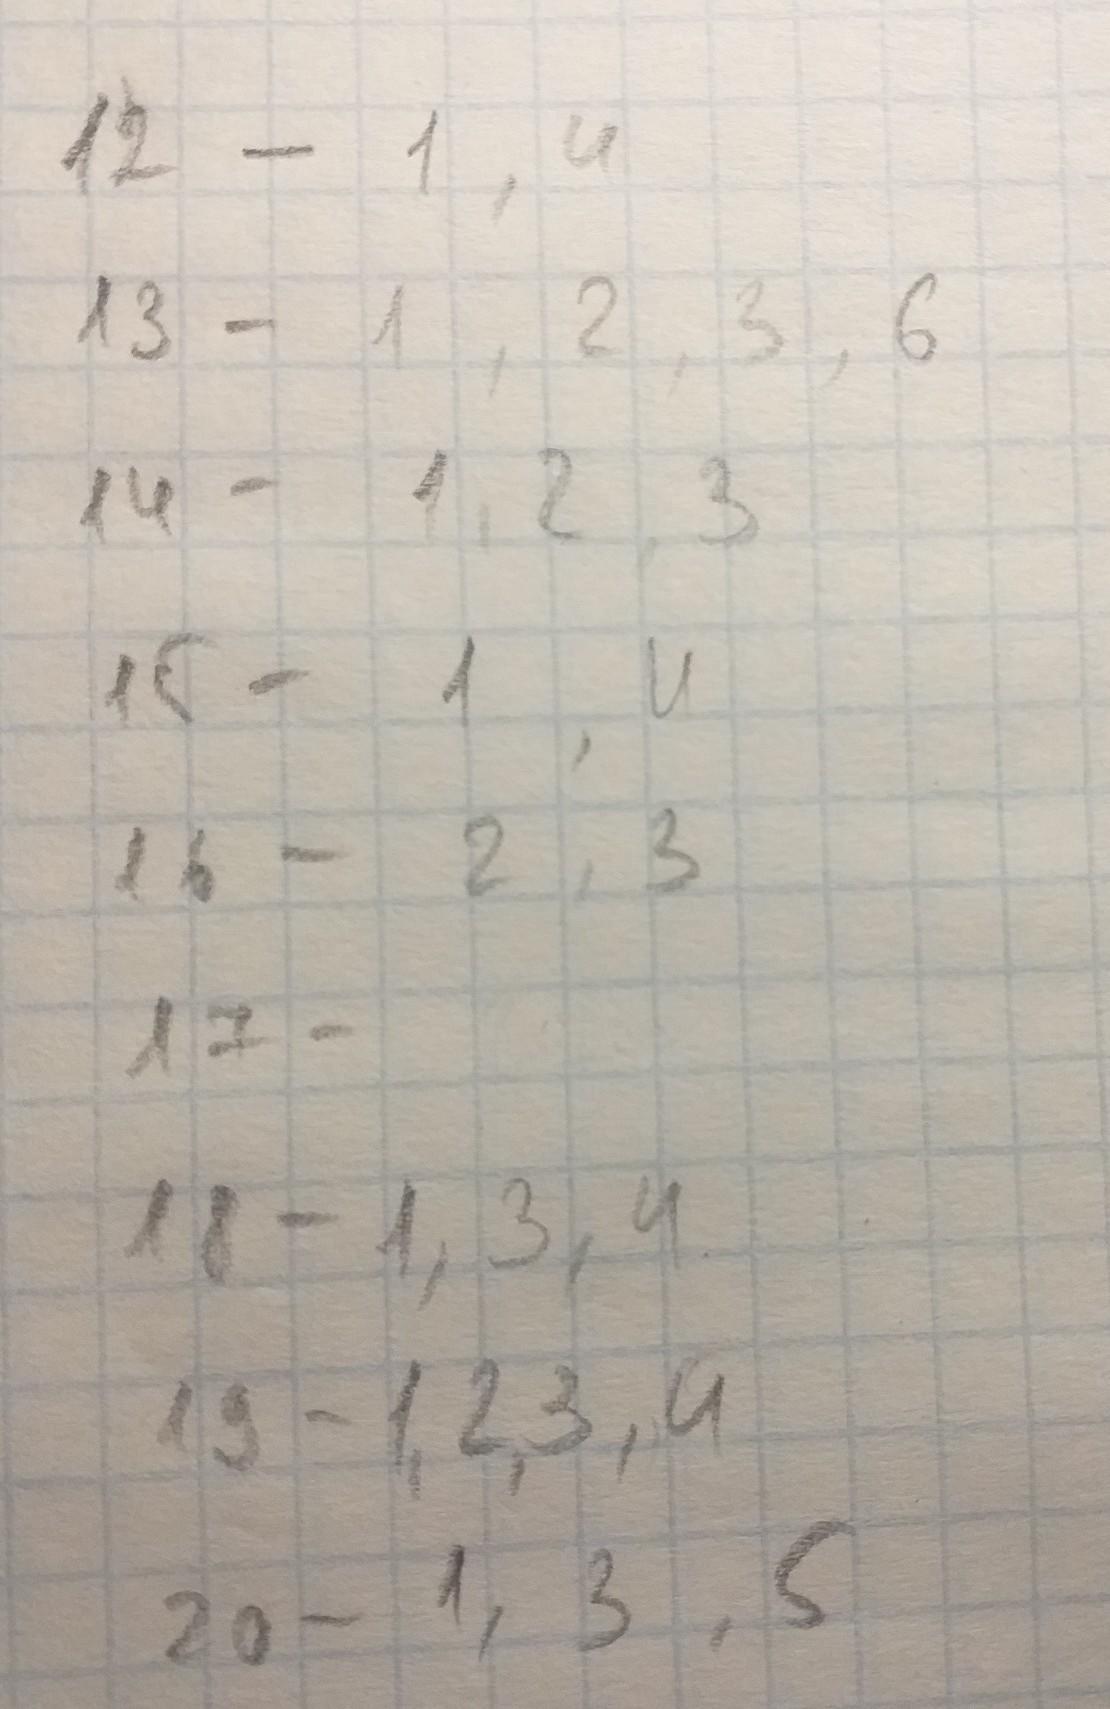 12 - 1, 4
13 - 1, 2, 3, 6
14 - 1, 2, 3
15 - 1, 4
16 - 2, 3
17 -
18 - 1, 3, 4
19 - 1, 2, 3, 4
20 - 1, 3, 5